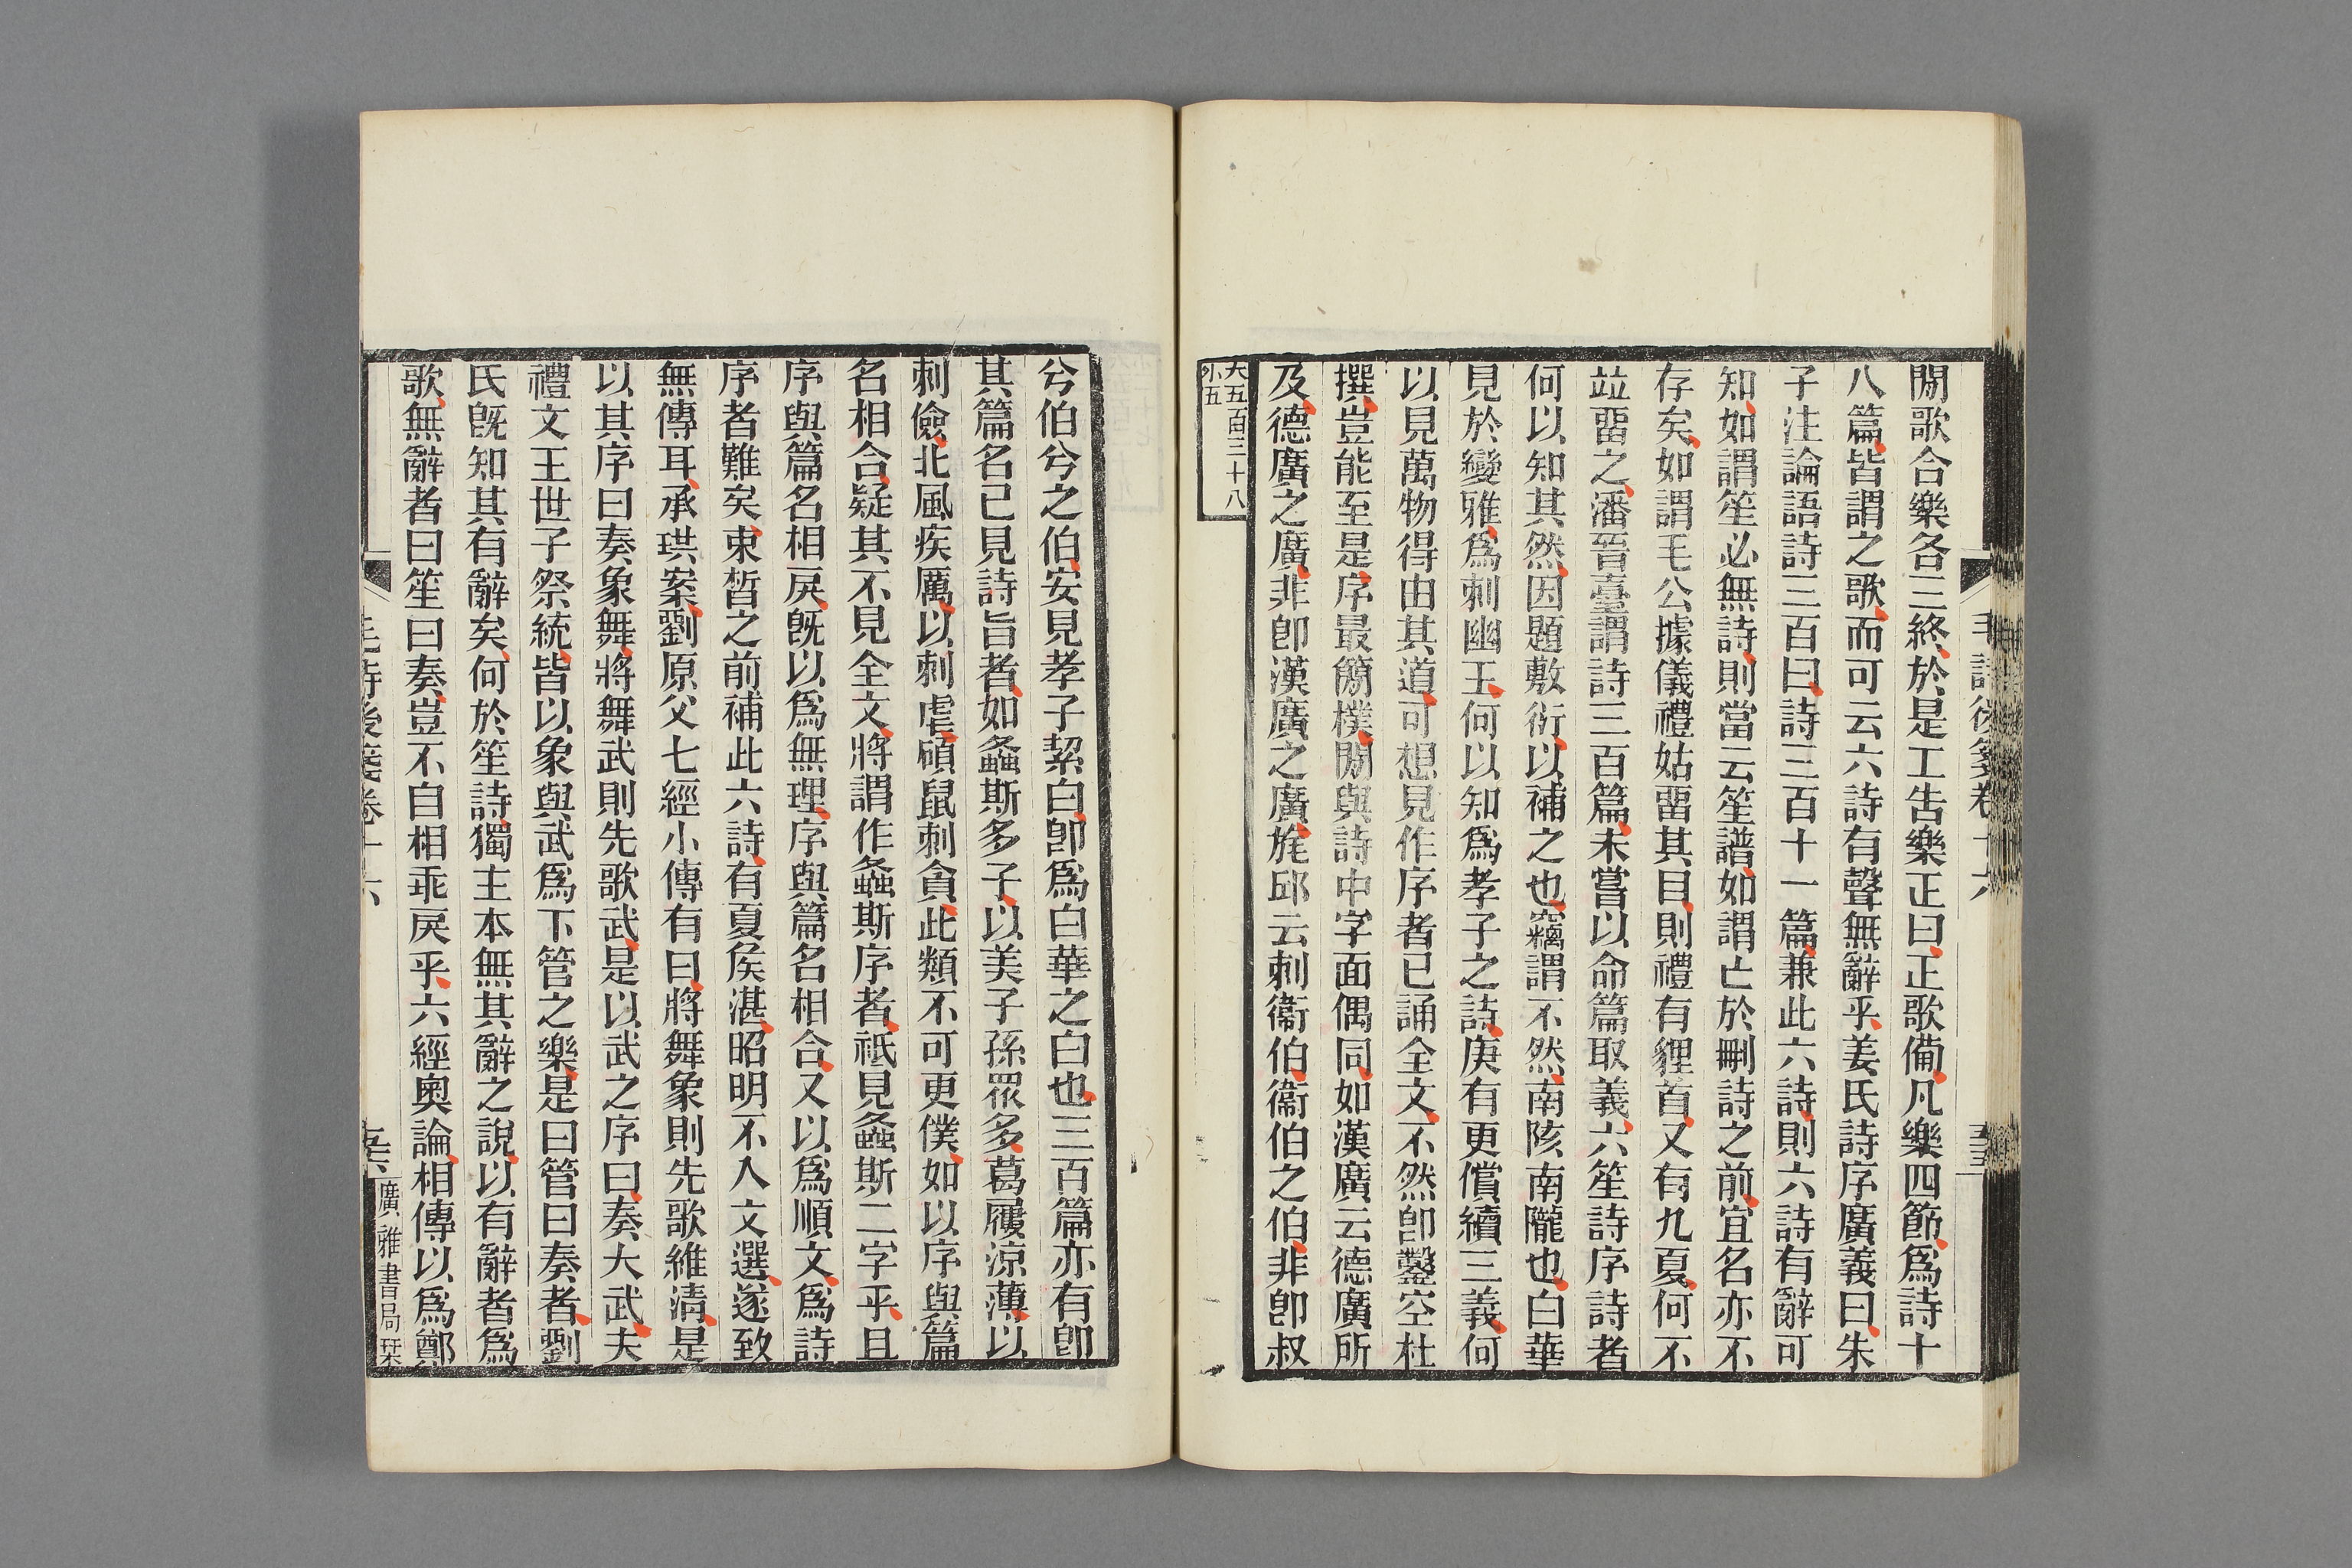 毛詩後箋卷十六
閒歌合樂各三終於是工告樂正曰正歌備凡樂四節爲詩十
八篇皆謂之歌而可云六詩有聲無辭乎姜氏詩序廣義曰朱
子注論語詩三百曰詩三百十一篇兼此六詩則六詩有辭可
知如謂笙必無詩則當云笙譜如謂亡於刪詩之前宜名亦不
存矣如謂毛公據儀禮姑畱其目則禮有貍首又有九夏何不
竝畱之潘晉臺謂詩三百篇未嘗以命篇取義六笙詩序詩者
何以知其然因題敷衍以補之也竊謂不然南陔南隴也白華
見於變雅爲刺幽王何以知爲孝子之詩庚有更償續三義何
以見萬物得由其道可想見作序者已誦全文不然卽鑿空杜
撰豈能至是序最簡樸閒與詩中字面偶同如漢廣云德廣所
及德廣之廣非卽漢廣之廣旄邱云刺衞伯衞伯之伯非卽叔
大五百三十八
小五
兮伯兮之伯安見孝子絜白卽爲白華之白也三百篇亦有卽
其篇名已見詩旨者如螽斯多子以美子孫眾多葛屨涼薄以
刺儉北風疾厲以刺虐碩鼠刺貪此類不可更僕如以序與篇
名相合疑其不見全文將謂作螽斯序者祇見螽斯二字乎且
序與篇名相戾旣以爲無理序與篇名相合又以爲順文爲詩
序者難矣束晳之前補此六詩有夏侯湛昭明不入文選遂致
無傳耳承珙案劉原父七經小傳有曰將舞象則先歌維清是
以其序曰奏象舞將舞武則先歌武是以武之序曰奏大武夫
禮文王世子祭統皆以象與武爲下管之樂是曰管曰奏者劉
氏旣知其有辭矣何於笙詩獨主本無其辭之說以有辭者爲
歌無辭者曰笙曰奏豈不自相乖戾乎六經奧論相傳以爲鄭
毛詩後箋卷十六
廣雅書局栞